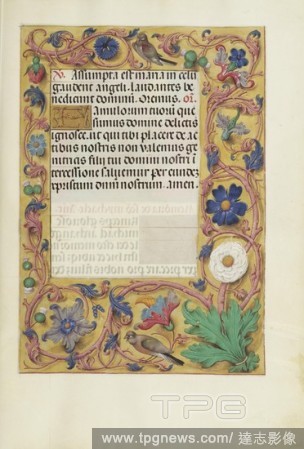 V. Assumpta est maria in celū
gaudent angeli. laudantes be
nedicunt dominū. Oremus. or.
Famulorum tuorū que
sumus domine delictis
ignosce. ut qui tibi placere de ac
tibus nostris non valemus ge
nitricis filii tui domini nostri i
tercessione salvemur per eundez
xpristum dnm nostrum. amen.
TPG
www.tpgnews.com/ 達志影像